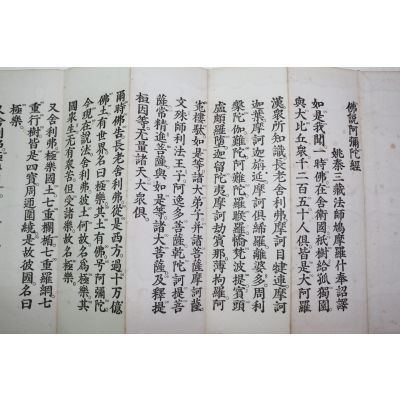 佛說阿彌陀經
姚秦三藏法師鳩摩羅什奉詔譯
如是我聞一時佛在舍衛國祇樹給孤獨園
與大比丘衆千二百五十人俱皆是大阿羅
漢衆所知識長老舍利弗摩訶目犍連摩訶
迦葉摩訶迦旃延摩訶俱絺羅離婆多周利
槃陀伽難陀阿難陀羅睺羅憍梵波提賓頭
盧頗羅墮迦留陀夷摩訶劫賓那薄拘羅阿
㝹樓馱如是等諸大弟子并諸菩薩摩訶薩
文殊師利法王子阿逸多菩薩乾陀訶提菩
薩常精進菩薩與如是等諸大菩薩及釋提
桓因等无量諸天大衆俱
爾時佛告長老舍利弗從是西方過十万億
佛土有世界名曰極樂其土有佛号阿彌陀
今現在說法舍利弗彼土何故名爲極樂其
國衆生无有衆苦但受諸樂故名極樂
又舍利弗極樂國土七重欄楯七重羅網七
重行樹皆是四寶周迊圍繞是故彼國名曰
極樂
又舍利弗